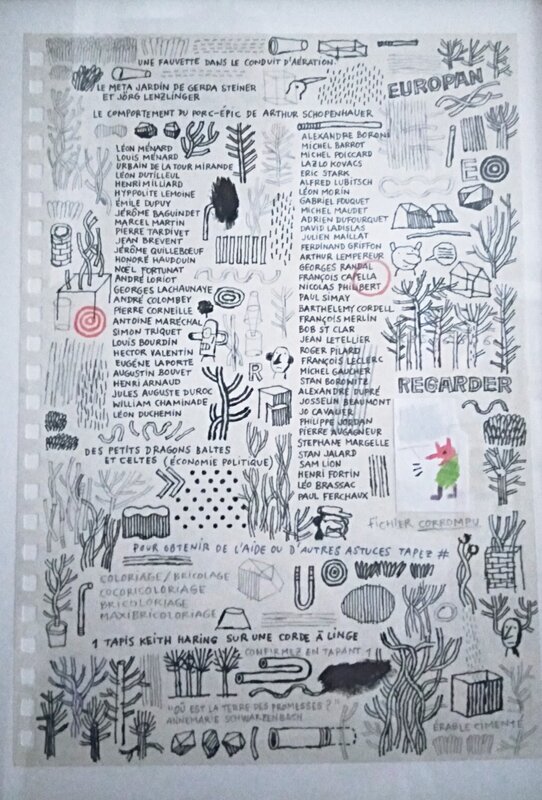 UNE FAUVETTE DANS LE CONDUIT D'AÉRATION.
LE META JARDIN DE GERDA STEINER
ET JÖRG LENZLINGER
EUROPAN
LE COMPORTEMENT DU PORC-ÉPIC DE ARTHUR SCHOPENHAUER
LÉON MÉNARD
LOUIS MÉNARD
URBAIN DE LA TOUR MIRANDE
LÉON DUTILLEUL
HENRI MILLIARD
HYPPOLITE LEMOINE
ÉMILE DUPUY
JÉRÔME BAGUINDET
MARCEL MARTIN
PIERRE TARDIVET
JEAN BREVENT
JÉRÔME QUILLEBŒUF
HONORÉ HAUDOUIN
NOËL FORTUNAT
ANDRÉ LORIOT
GEORGES LACHAUNAYE
ANDRÉ COLOMBEY
PIERRE CORNEILLE
ANTOINE MARÉCHAL
SIMON TRIQUET
LOUIS BOURDIN
HECTOR VALENTIN
EUGÈNE LAPORTE
AUGUSTIN BOUVET
HENRI ARNAUD
JULES AUGUSTE DUROC
WILLIAM CHAMINADE
LÉON DUCHEMIN
ALEXANDRE BORONI
MICHEL BARROT
MICHEL POICCARD
LAZLO KOVACS
ERIC STARK
ALFRED LUBITSCH
LÉON MORIN
GABRIEL FOUQUET
MICHEL MAUDET
ADRIEN DUFOURQUET
DAVID LADISLAS
JULIEN MAILLAT
FERDINAND GRIFFON
ARTHUR LEMPEREUR
GEORGES RANDAL
FRANÇOIS CAPELLA
NICOLAS PHILIBERT
PAUL SIMAY
BARTHELEMY CORDELL
FRANÇOIS MERLIN
BOB ST CLAR
JEAN LETELLIER
ROGER PILARD
FRANÇOIS LECLERC
MICHEL GAUCHER
STAN BOROWITZ
ALEXANDRE DUPRÉ
JOSSELIN BEAUMONT
JO CAVALIER
PHILIPPE JORDAN
PIERRE AUGAGNEUR
STEPHANE MARGELLE
STAN JALARD
SAM LION
HENRI FORTIN
LÉO BRASSAC
PAUL FERCHAUX
E
R
REGARDER
DES PETITS DRAGONS BALTES
ET CELTES (ÉCONOMIE POLITIQUE)
FICHIER CORROMPU
POUR OBTENIR DE L'AIDE OU D'AUTRES ASTUCES TAPEZ #
COLORIAGE/BRICOLAGE
COCORICOLORIAGE
BRICOLORIAGE
MAXIBRICOLORIAGE
1 TAPIS KEITH HARING SUR UNE CORDE À LINGE
CONFIRMEZ EN TAPANT 1
"OÙ EST LA TERRE DES PROMESSES?"
ANNEMARIE SCHWARZENBACH
ÉRABLE CIMENTÉ